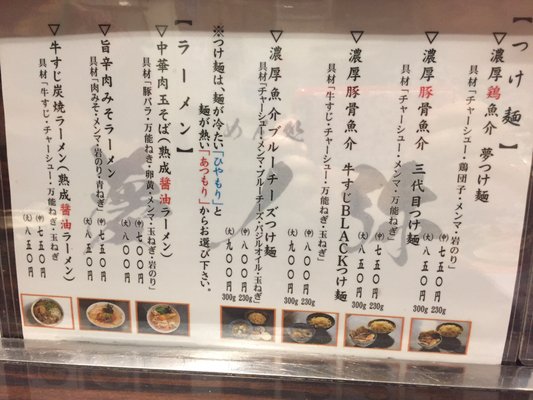 【つけ麺】
▽濃厚鶏魚介 夢つけ麺
具材「チャーシュー・鶏団子・メンマ・岩のり」
(中)七五〇円 230g
(大)八五〇円 300g
▽濃厚豚骨魚介 三代目つけ麺
具材「チャーシュー・メンマ・万能ねぎ」
(中)七五〇円 230g
(大)八五〇円 300g
▽濃厚豚骨魚介 牛すじBLACKつけ麺
具材「牛すじ・チャーシュー・万能ねぎ・玉ねぎ」
(中)八〇〇円 230g
(大)九〇〇円 300g
▽濃厚魚介 ブルーチーズつけ麺
具材「チャーシュー・メンマ・ブルーチーズ・バジルオイル・玉ねぎ」
(中)八〇〇円 230g
(大)九〇〇円 300g
※つけ麺は、麺が冷たい「ひやもり」と
麺が熱い「あつもり」からお選び下さい。
【ラーメン】
▽中華肉玉そば(熟成醤油ラーメン)
具材「豚バラ・万能ねぎ・卵黄・メンマ・玉ねぎ・岩のり」
(中)七五〇円
(大)八〇〇円
▽旨辛肉みそラーメン
具材「肉みそ・メンマ・岩のり・青ねぎ」
(中)七五〇円
(大)八五〇円
▽牛すじ炭焼ラーメン(熟成醤油ラーメン)
具材「牛すじ・チャーシュー・万能ねぎ・玉ねぎ
(中)七五〇円
(大)八五〇円